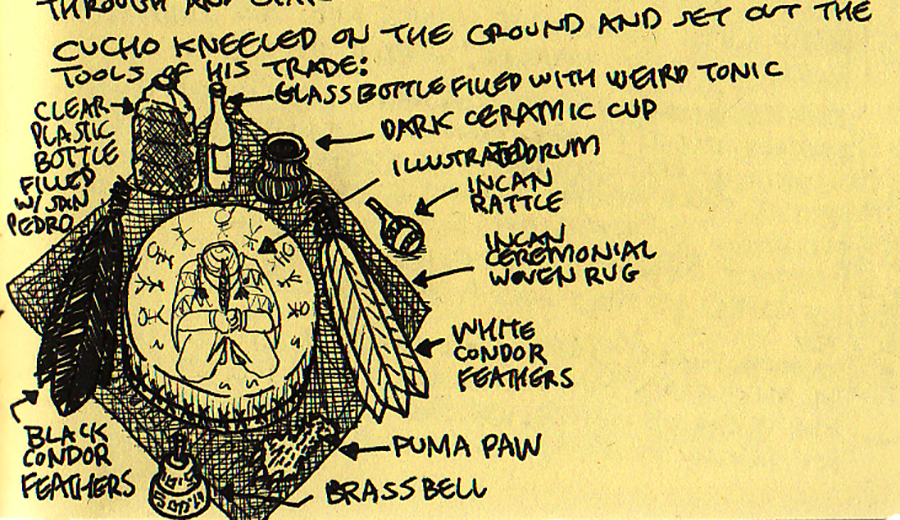 THROUGH AND
CUCHO KNEELED ON THE GROUND AND SET OUT THE
TOOLS OF HIS TRADE:
CLEAR
PLASTIC
BOTTLE
FILLED
W/ SAN
PEDRO
GLASS BOTTLE FILLED WITH WEIRD TONIC
DARK CERAMIC CUP
ILLUSTRATED DRUM
INCAN
RATTLE
INCAN
CEREMONIAL
WOVEN RUG
WHITE
CONDOR
FEATHERS
BLACK
CONDOR
FEATHERS
PUMA PAW
BRASS BELL